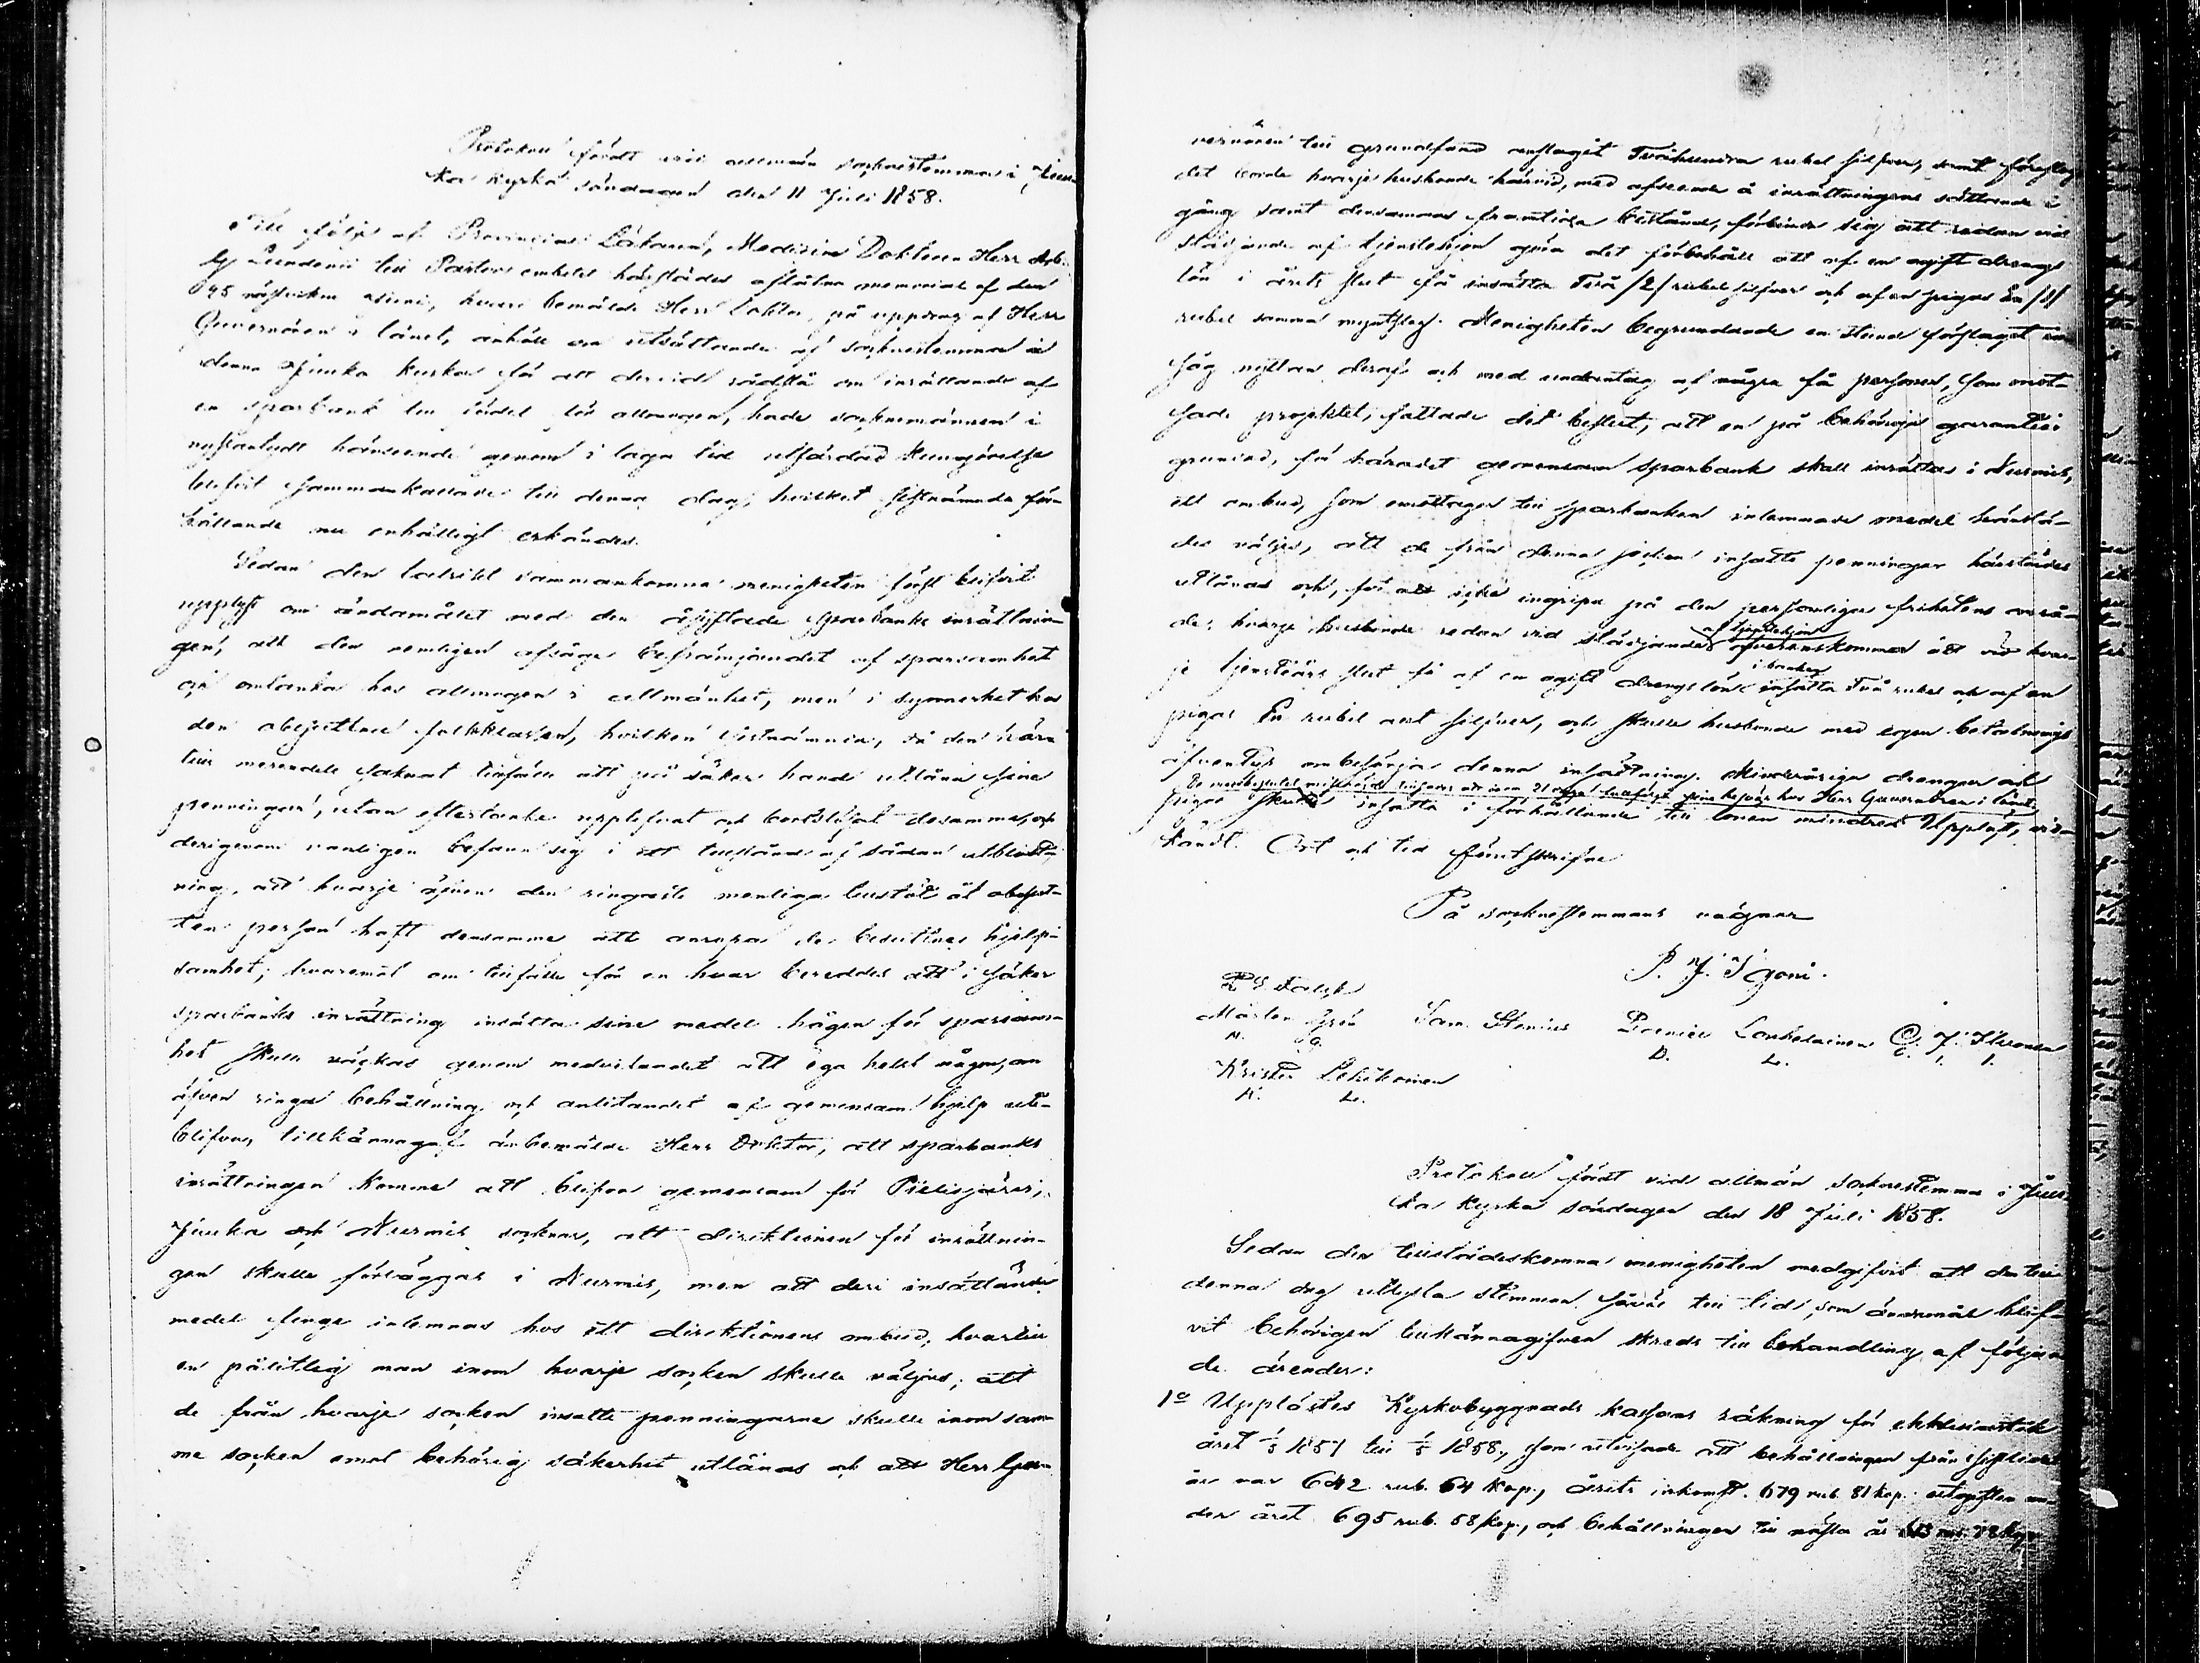 Protokoll fördt vid allmän sockne­stemma i Juu-
ka kyrka söndagen den 11 Juli 1858.
Till följe af Provincial Läkaren, Medicine Doktoren Herr
Lundenii till Pastors embetet härstädes aflåtna memorial af den
sistvikne Juni, hvari bemälde Herr Doktor, på uppdrag af Herr
Guvernören i länet, anhåll om utsättande af sockne­stemma i
denna Juuka kyrka för att dervid rådslå om inrättande af
en sparbank till fördel för allmogen, hade socknemännen i
nyssantydt hänseende genom i laga tid utfärdad kungörelse
blifvit sammankallade till denna dag, hvilket sistnämnda för-
hållande nu enhälligt erkändes.
Sedan den talrikt sammankomna menigheten först blifvit
upplyst om ändamålet med den åsyftade Sparbanks inrättnin-
gen, att den nemligen afsåge befrämjandet af sparsamhet
och omtanka hos allmogen i allmänhet, men i synnerhet hos
den obesuttna folkklassen, hvilken sistnämnda, då den här
till merendels saknat tillfälle att på säker hand utlåna sina
penningar, utan eftertanke upplefvat och bortslösat desamma, och
derigenom vanligen befann sig i ett tillstånd af sådan utblott-
ning, att hvarje äfven den ringaste menliga tillstöt åt obesut-
ten person haft densamme att anropa de besuttnes hjelp-
samhet; hvaremot om tillfälle för en hvar bereddes att i säker
sparbanks inrättning insätta sina medel hågen för sparsam-
het skulle väckas genom medvetandet att ega helst någon, om
äfven ringa behållning och anlitandet af gemensam hjelp ute-
blifva, tillkännagaf ofvanbemälde Herr Doktor, att sparbanks
inrättningen komme att blifva gemensam för Pielisjärvi,
Juuka och Nurmis socknar, att direktionen för inrättnin-
gen skulle förläggas i Nurmis, men att deri insättande
medel finge inlemnas hos ett direktionens ombud, hvartill
en pålitlig man inom hvarje socken skulle väljas; att
de från hvarje socken insatte penningarne skulle inom sam-
me socken emot behörig säkerhet utlånas och att Herr Gu-
vernören till grundfond anslagit Tvåhundra rubel silfver, samt föreslog
det borde hvarje husbonde härvid, med afseende å inrättningens sättande i
gång samt densammas framtida bestånd, förbinda sig att redan vid
städjande af tjenstehjon göra det förbehåll att af en ogift drengs
lön i årets slut få insätta Två /2/ rubel silfver och af en pigas En /1/
rubel samma myntslag. Menigheten begrundande en stund förslaget in-
såg nyttan deraf och med undantag af några få personer, som mot-
sade projektet, fattade det beslut, att en på behöriga garantier
grundad, för häradet gemensam Sparbank skall inrättas i Nurmis,
ett ombud, som emottager till sparbanken inlemnade medel härstä-
des väljes, att de från denna socken insatte penningar härstädes
utlånas och, för att icke ingripa på den personliga frihetens områ-
de, hvarje husbonde redan vid städjandet af tjenstehjon öfverenskommer att vid hvar-
je tjensteårs slut få af en ogift drengs lön i banken insätta Två rubel och af en
pigas En rubel allt silfver, och skulle husbonde med egen betalnings
äfventyr ombesörja denna insättning. Minderåriga drengar och
De med beslutet missnöjde hänvisas att inom 21 dagar fullfölja sina besvär hos Herr Guvernören i länet.
pigor skulle insätta i förhållande till lönen mindre. Uppläst, vid-
kändt. Ort och tid förutskrifne
På sockne­stemmans vägnar
P. J. Igoni.
Mårten
M. G.
Sam. Stenius
D. L.
C. J. Ikonen
C. J. I.
Krister
K. L.
Protokoll fördt vid allmän sockne­stemma i Juu-
ka kyrka söndagen den 18 Juli 1858.
Sedan den tillstädeskomna menigheten medgifvit att den till
denna dag utlysta stemman såväl till tid, som ändamål blif-
vit behörigen tillkännagifven skreds till behandling af följan-
de ärender:
1o Upplästes Kyrkobyggnads kassans räkning för ekklesiastik
året 1/5 1857 till 1/5 1858, som utvisade att behållningen från sistlidet
år var 642 rub. 64 kop., årets inkomst 679 rub. 81 kop. utgiften un-
der året 695 rub. 58 kop., och behållningen till nästa år